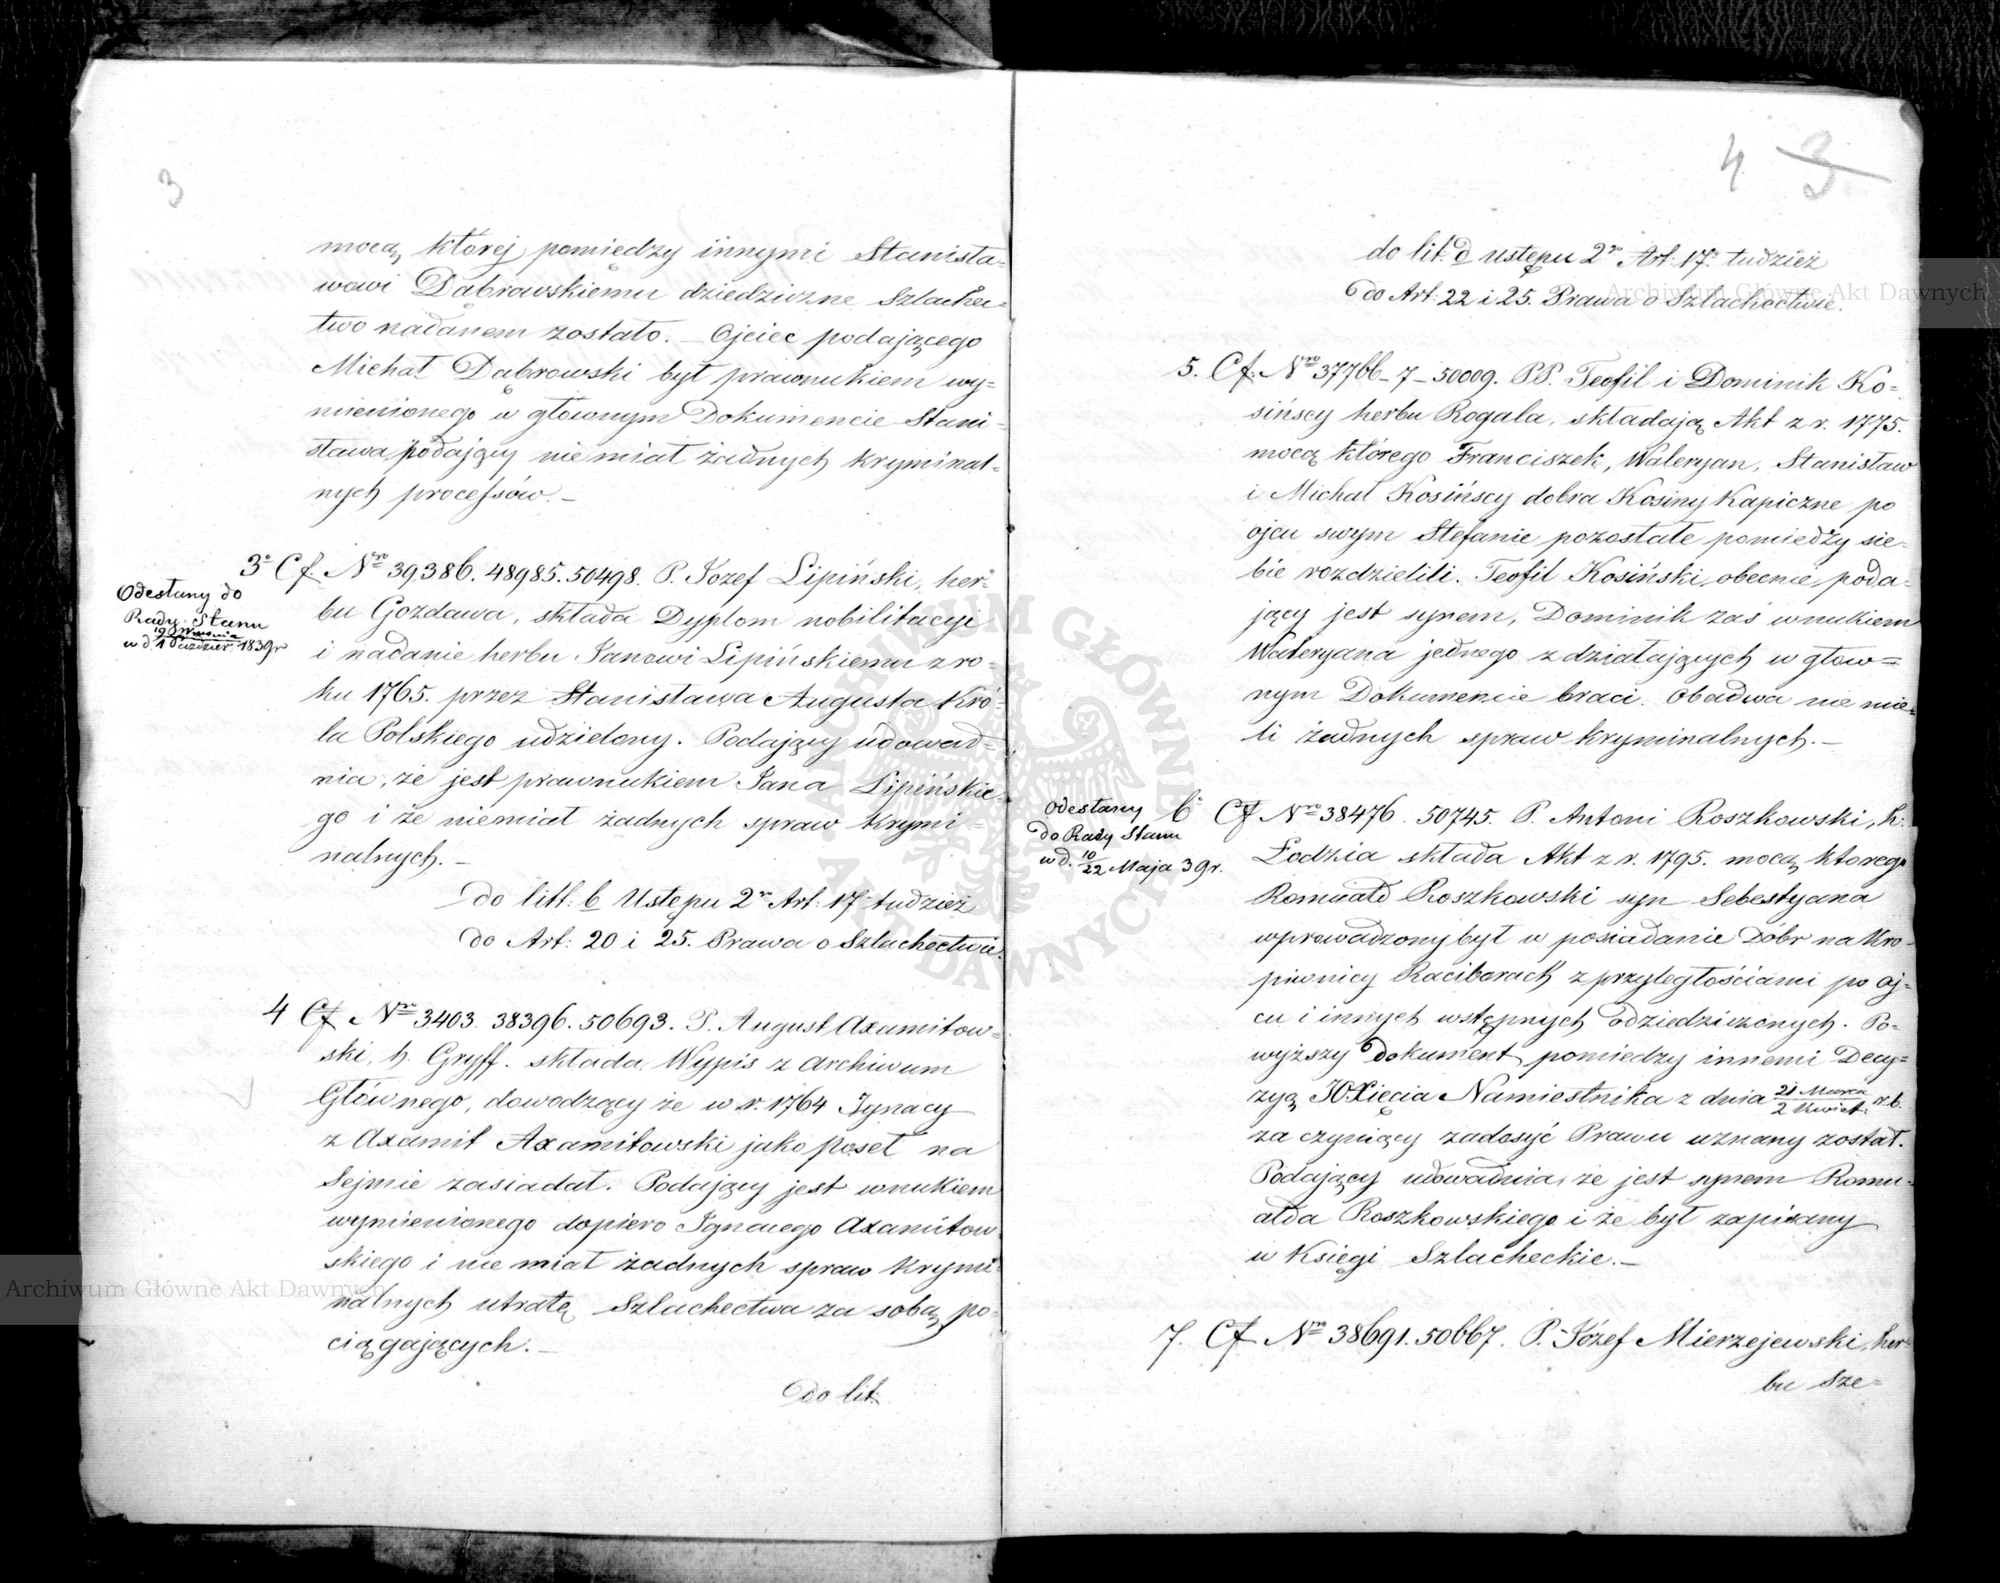 3
mocą której pomiedzy innymi Stanisła=
wowi Dąbrowskiemu dziedziczne Szlachec=
two nadanem zostało. – Ojciec podającego
Michał Dąbrowski był prawnukiem wy=
mienionego w głównym Dokumencie Stani=
sława podający niemiał żadnych kryminal=
nych processów. –
3° Cf. Nro 39386. 48985. 50498. P. Józef Lipiński, her=
Odesłany do
Rady Stanu
w d. 19 Września / 1 Paździer. 1839 r
bu Gozdawa, składa Dyplom nobilitacyi
i nadanie herbu Janowi Lipińskiemu z ro=
ku 1765. przez Stanisława Augusta Kró=
la Polskiego udzielony. Podający udowad=
nia, że jest prawnukiem Jana Lipińskie=
go i że niemiał żadnych spraw krymi=
nalnych. –
Do litt: b Ustępu 2go Art: 17° tudzież
do Art: 20 i 25. Prawa o Szlachectwie.
4 Cf Nro 3403. 38396. 50693. P. August Axamitow=
ski, h. Gryff. składa Wypis z Archiwum
Głównego, dowodzący że w r. 1764 Ignacy
z Axamit Axamitowski jako poseł na
Sejmie zasiadał. Podający jest wnukiem
wymienionego dopiero Ignacego Axamitow=
skiego i nie miał żadnych spraw krymi=
nalnych utratę Szlachectwa za sobą po=
ciągających. –
Do lit.
4 3
do lit. d ustępu 2go Art: 17° tudzież
do Art: 22 i 25. Prawa o Szlachectwie.
5. Cf. Nro 37766–7–50009. PP. Teofil i Dominik Ko=
sińscy herbu Rogala, składają Akt z r. 1775.
mocą którego Franciszek, Waleryan, Stanisław
i Michał Kosińscy dobra Kosiny Kapiczne po
ojcu swym Stefanie pozostałe pomiedzy sie=
bie rozdzielili. Teofil Kosiński obecnie poda=
jący jest synem, Dominik zaś wnukiem
Waleryana jednego z działających w głów=
nym Dokumencie braci. Obadwa nie mie=
li żadnych spraw kryminalnych. –
6° Cf Nro 38476. 50745. P. Antoni Roszkowski, h.
Odesłany
do Rady Stanu
w d. 10/22 Maja 39 r.
Łodzia składa Akt z r. 1795. mocą którego
Romuald Roszkowski syn Sebestyana
wprowadzony był w posiadanie Dóbr na Kro=
piwnicy Raciborach z przyległościami po oj=
cu i innych wstępnych odziedziczonych. Po=
wyższy dokument pomiedzy innemi Decy=
zyą JO. Xięcia Namiestnika z dnia 21 Marca / 2 Kwiet. r. b.
za czyniący zadosyć Prawu uznany został.
Podający udowadnia, że jest synem Romu=
alda Roszkowskiego i że był zapisany
w Księgi Szlacheckie. –
7. Cf Nro 38691. 50667. P. Józef Mierzejewski, her=
bu Sze=
Archiwum Główne Akt Dawnych
Archiwum Główne Akt Dawnych
ARCHIWUM GŁÓWNE AKT DAWNYCH